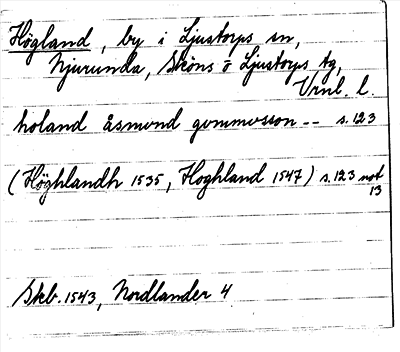 Högland, by i Ljustorps sn,
Njurunda, Sköns o Ljustorps tg,
Vrnl. l.
holand åsmund gummusson -- s.123
(Höghlandh 1535, Hoghland 1547) s.123 not
13
Skb. 1543, Nordlander 4